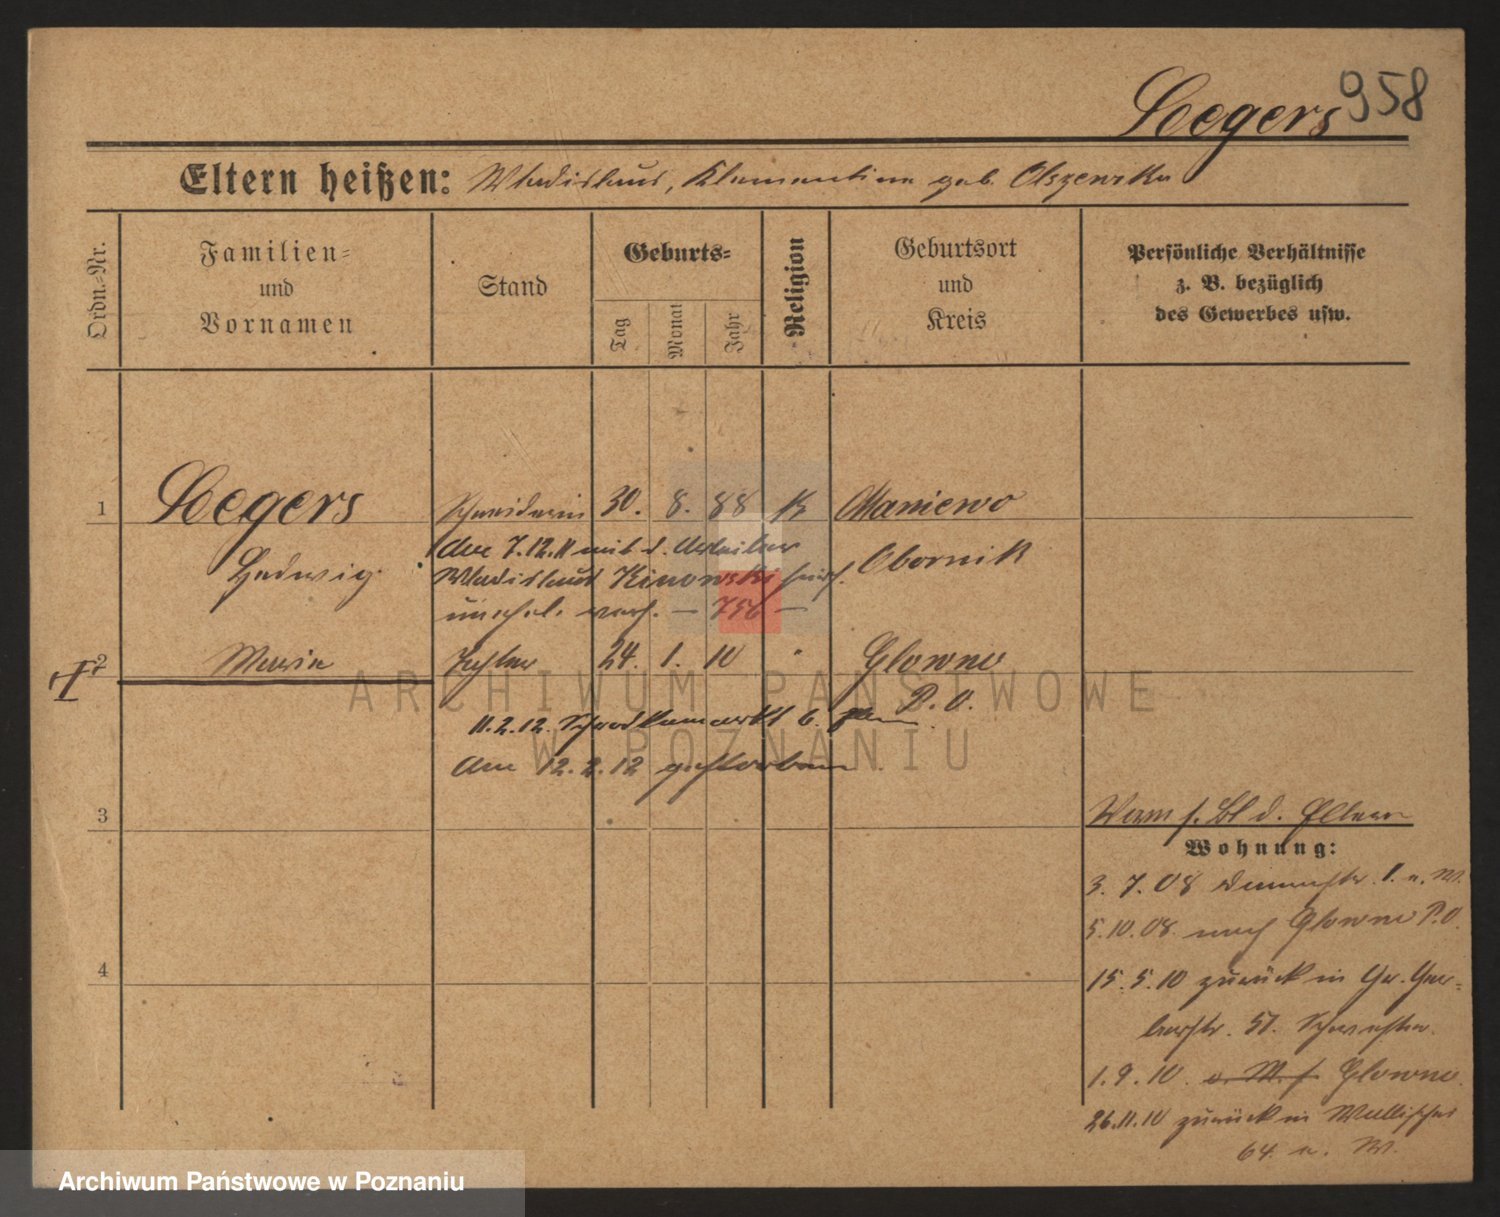 Seegers 958
Eltern heißen: Wladislaus, Klementine geb. Olszewska
Ordn.-Nr.
Familien-
und
Vornamen
Stand
Geburts-
Tag
Monat
Jahr
Religion
Geburtsort
und
Kreis
Persönliche Verhältnisse
z. B. bezüglich
des Gewerbes usw.
1 Seegers Schneiderin 30. 8. 88 K Maniewo
Hedwig Obornik
Am 7.12.11 mit d. Arbeiter
Wladislaus Kinowski hier
verh. — 756 —
2 Maria Tochter 24. 1. 10 " Glowno
P. O.
11.2.12.
am 12.2.12 gestorben
3
4
Vorm s. Bl d. Eltern
Wohnung:
3. 7. 08 1. u. W.
5.10.08. nach Glowno P.O.
15.5.10 zurück in Gr. Ger-
berstr. 51. Schwester.
1.9.10. Glowno.
26.11.10 zurück in Wallischei
64. u. W.
ARCHIWUM PAŃSTWOWE
W POZNANIU
Archiwum Państwowe w Poznaniu